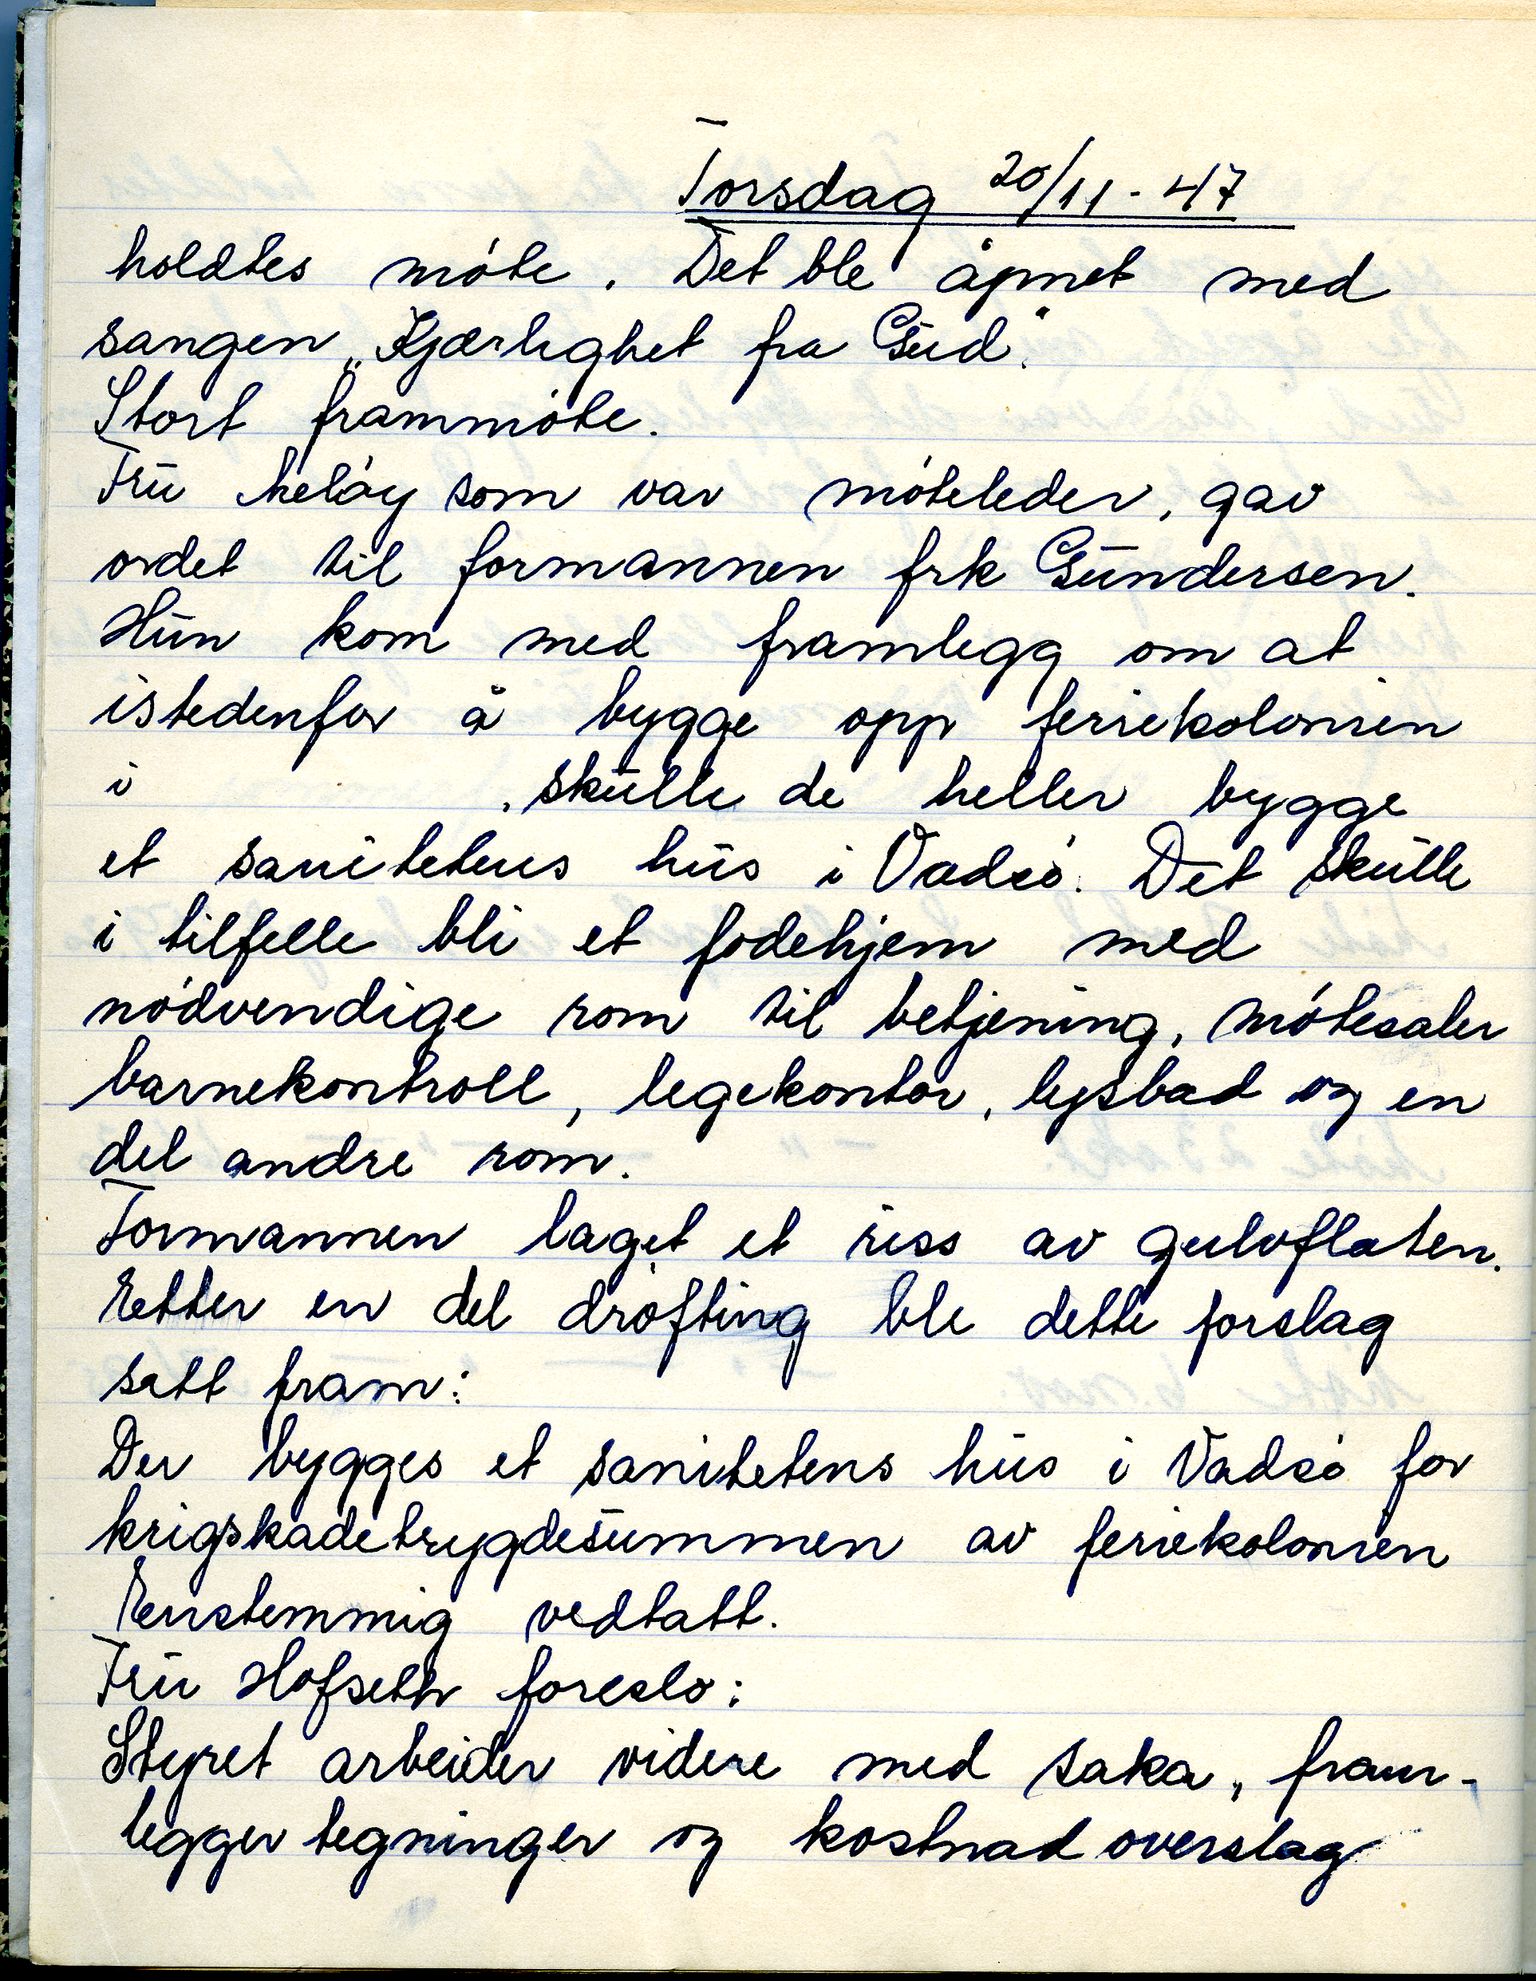 Torsdag 20/11 - 47
holdtes møte. Det ble åpnet med
sangen „Kjærlighet fra Gud".
Stort frammøte.
Fru Meløy som var møteleder, gav
ordet til formannen frk Gundersen.
Hun kom med framlegg om at
istedenfor å bygge opp feriekolonien
i . skulle de heller bygge
et sanitetens hus i Vadsø. Det skulle
i tilfelle bli et fødehjem med
nødvendige rom til betjening, møtesaler
barnekontroll, legekontor, lysbad og en
del andre rom.
Formannen laget et riss av gulvflaten.
Etter en del drøfting ble dette forslag
satt fram:
Der bygges et sanitetens hus i Vadsø for
krigskadetrygdesummen av feriekolonien
Enstemmig vedtatt.
Fru Hofseth foreslo:
Styret arbeider videre med saka, fram-
legger tegninger og kostnad overslag